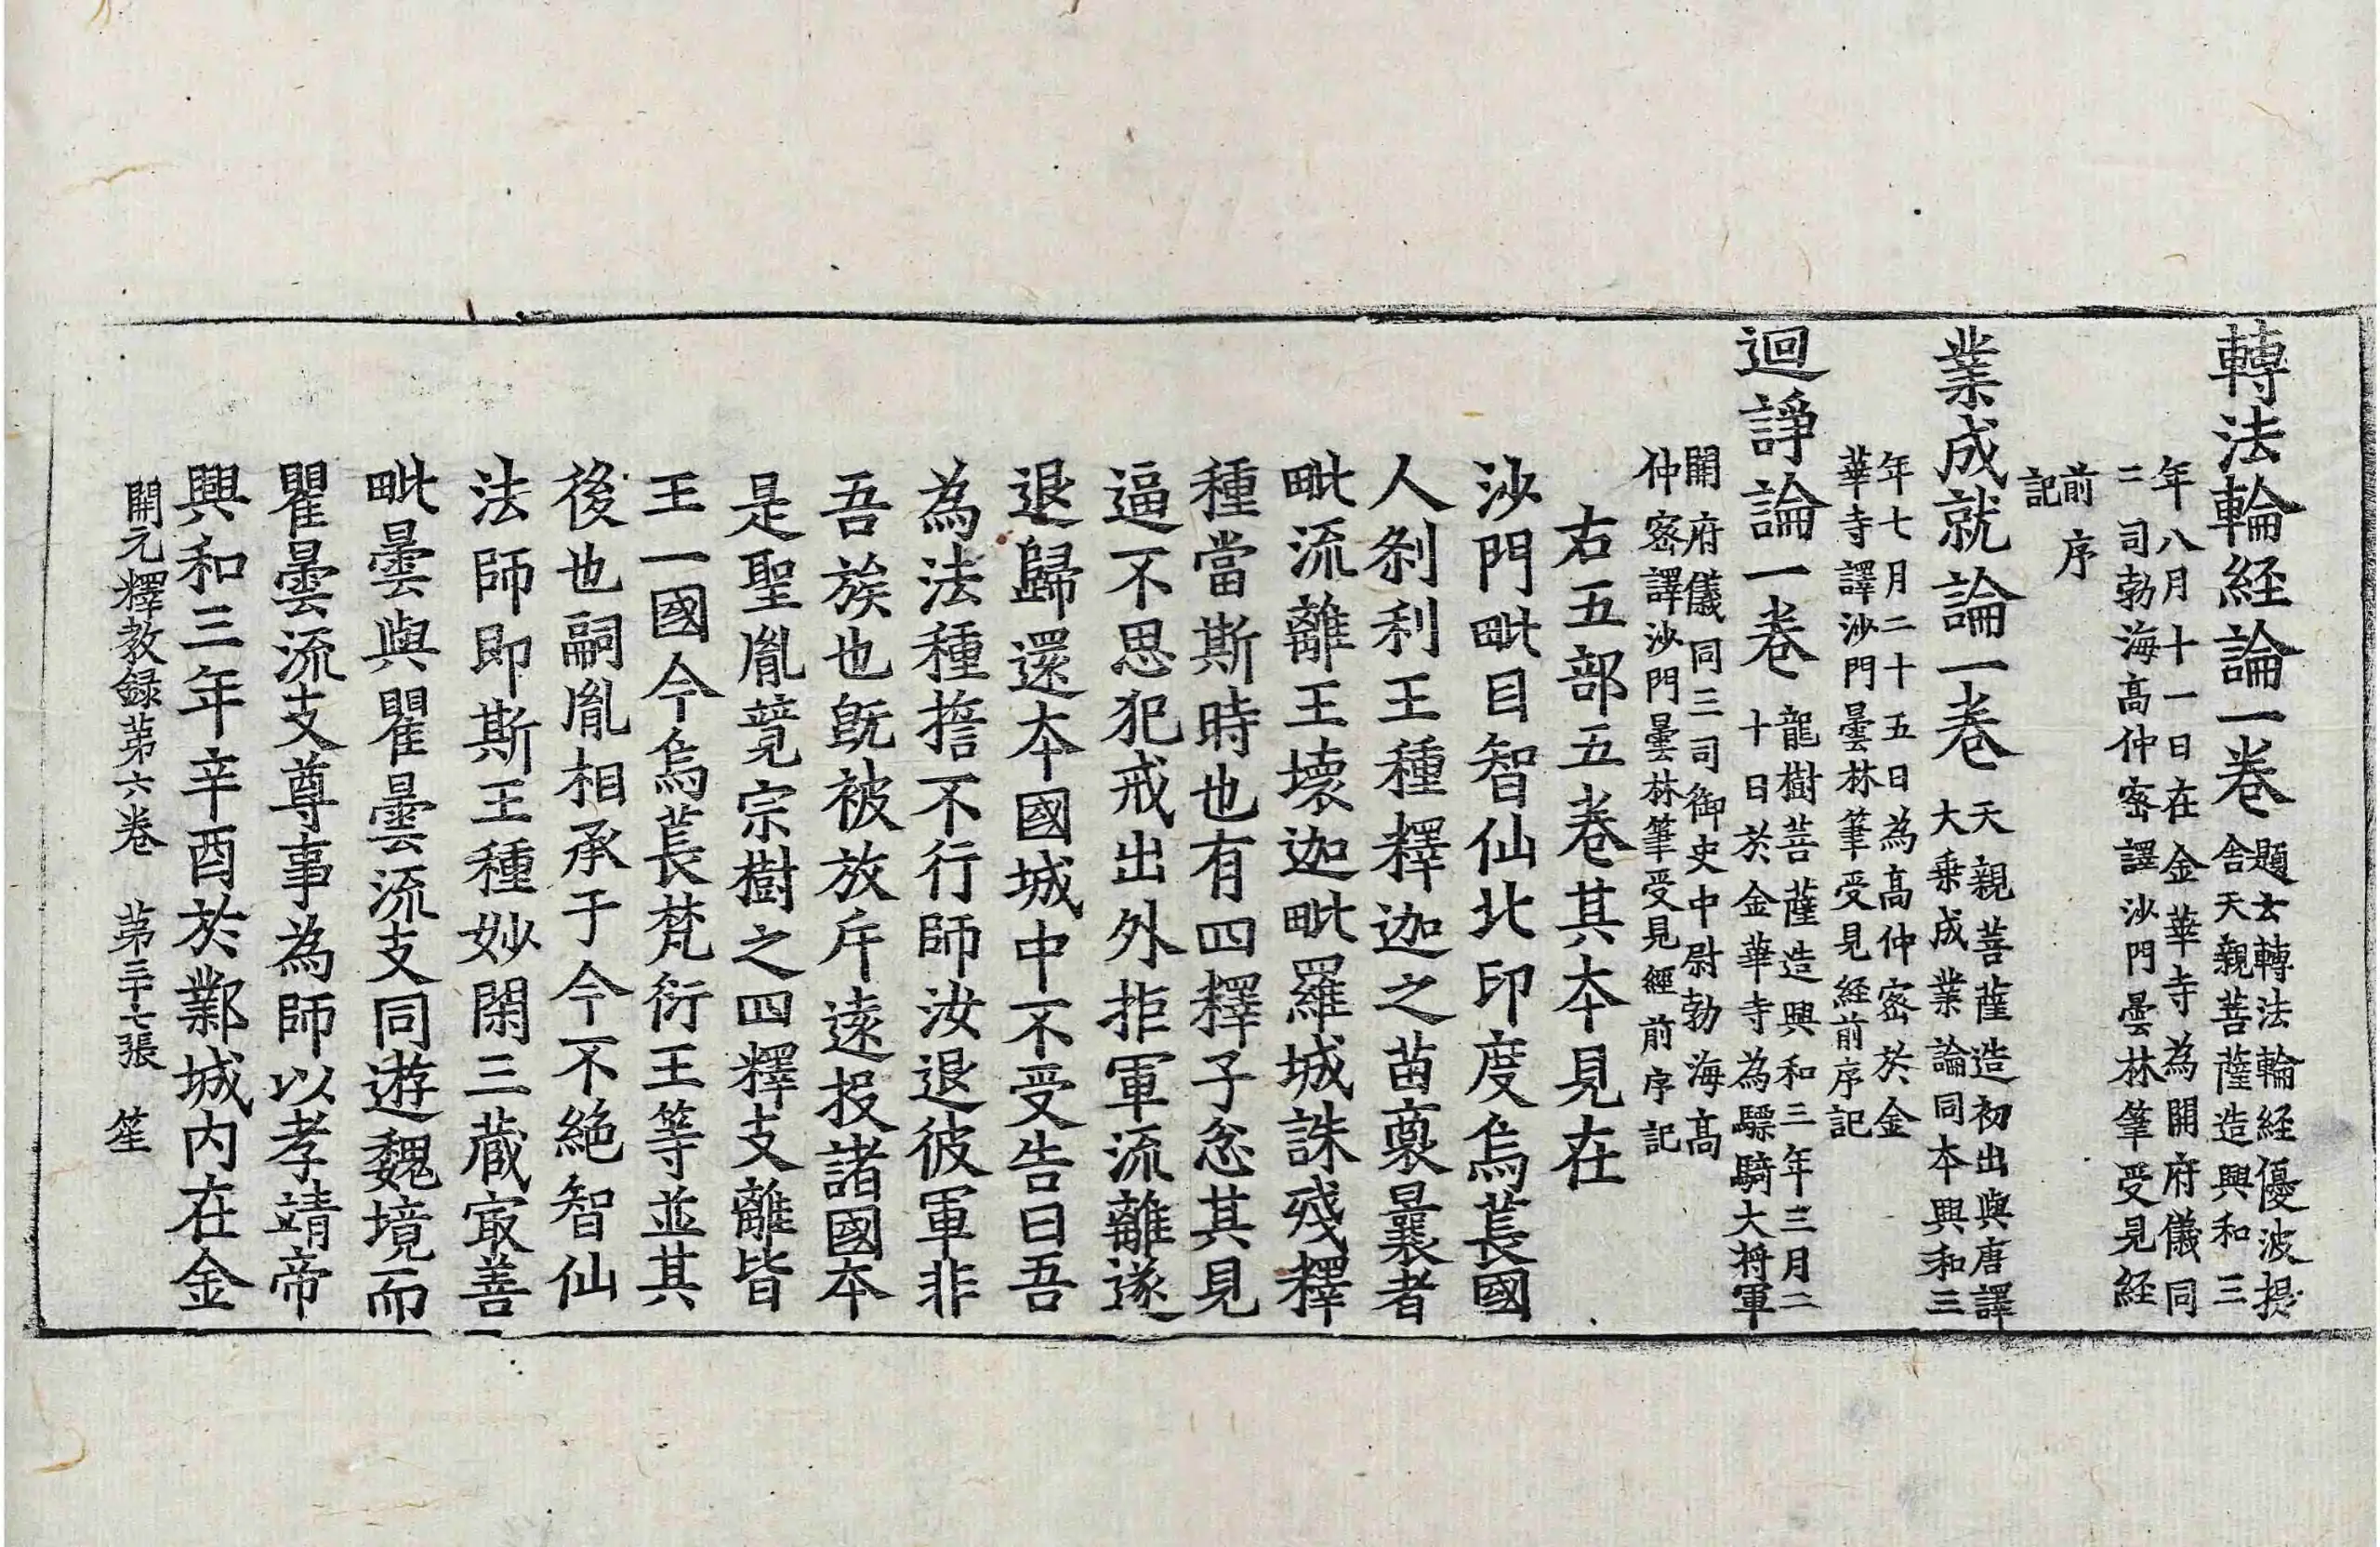 轉法輪經論一卷 題云轉法輪經優波提
舍天親菩薩造興和三
年八月十一日在金華寺為開府儀同
三司勃海髙仲密譯沙門曇林筆受見經
前序
記
業成就論一卷 天親菩薩造初出與唐譯
大乗成業論同本興和三
年七月二十五日為髙仲密於金
華寺譯沙門曇林筆受見經前序記
迴諍論一卷 龍樹菩薩造興和三年三月二
十日於金華寺為驃騎大將軍
開府儀同三司御史中尉勃海髙
仲密譯沙門曇林筆受見經前序記
右五部五卷其本見在
沙門毗目智仙北印度烏萇國
人剎利王種釋迦之苗裔曩者
毗流離王壞迦毗羅城誅殘釋
種當斯時也有四釋子忿其見
逼不思犯戒出外拒軍流離遂
退歸還本國城中不受告曰吾
為法種擔不行師汝退彼軍非
吾族也既被放斥遠投諸國本
是聖胤競宗樹之四釋支離皆
王一國今烏萇梵衍王等並其
後也嗣胤相承于今不絶智仙
法師即斯王種妙閑三藏㝡善
毗曇與瞿曇流支同遊魏境而
瞿曇流支尊事為師以孝靖帝
興和三年辛酉於鄴城內在金
開元釋教録苐六卷 苐三十七張 笙